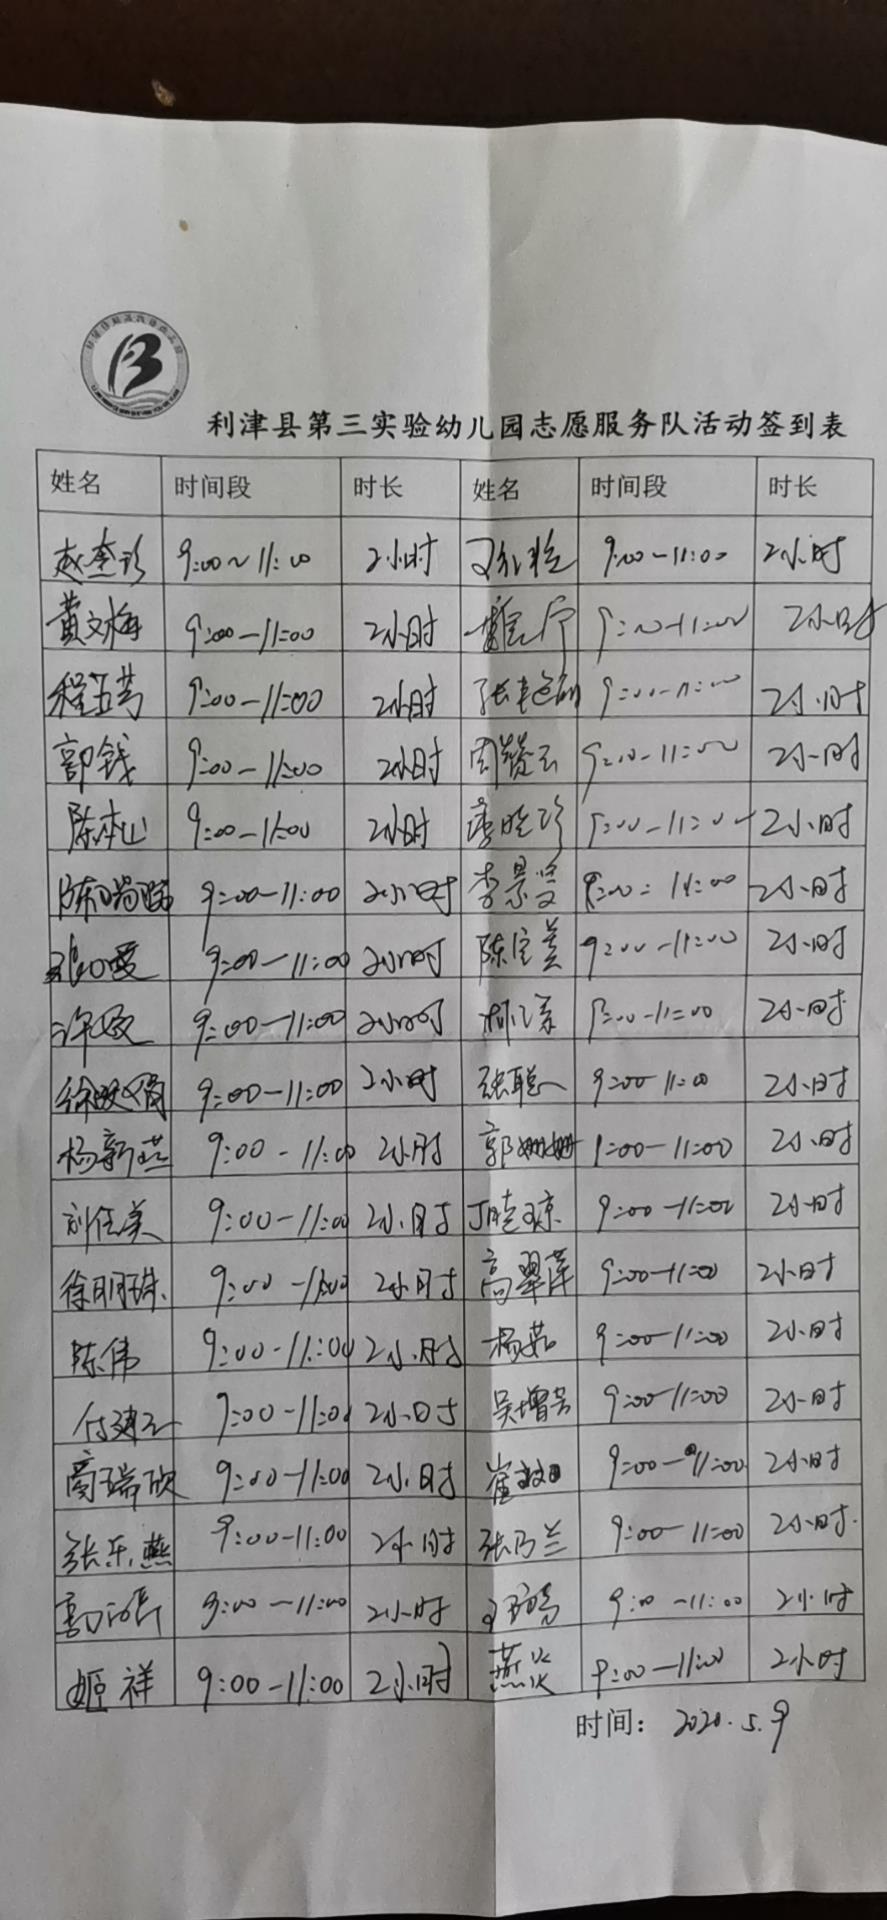 利津县第三实验幼儿园志愿服务队活动签到表
姓名 时间段 时长 姓名 时间段 时长
9:00~11:00 2小时 9:00-11:00 2小时
黄文梅 9:00-11:00 2小时 9:00-11:00 2小时
9:00-11:00 2小时 9:00-11:00 2小时
郭钱 9:00-11:00 2小时 周赞云 9:00-11:00 2小时
陈本山 9:00-11:00 2小时 李晓珍 9:00-11:00 2小时
9:00-11:00 2小时 李景雯 9:00-11:00 2小时
9:00-11:00 2小时 陈宝美 9:00-11:00 2小时
许敏 9:00-11:00 2小时 9:00-11:00 2小时
9:00-11:00 2小时 张聪 9:00-11:00 2小时
杨新燕 9:00-11:00 2小时 郭姗姗 9:00-11:00 2小时
刘任美 9:00-11:00 2小时 丁晓琼 9:00-11:00 2小时
徐明珠 9:00-11:00 2小时 高翠萍 9:00-11:00 2小时
陈伟 9:00-11:00 2小时 杨茹 9:00-11:00 2小时
9:00-11:00 2小时 吴增芳 9:00-11:00 2小时
高瑞欣 9:00-11:00 2小时 9:00-11:00 2小时
张乐燕 9:00-11:00 2小时 张乃兰 9:00-11:00 2小时
9:00-11:00 2小时 9:00-11:00 2小时
姬祥 9:00-11:00 2小时 燕炎 9:00-11:00 2小时
时间: 2020.5.9